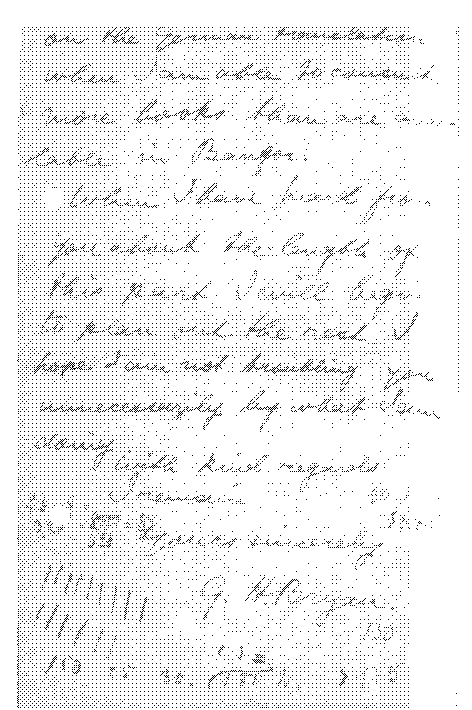 on the german translation
when I am able to consult
more books than are
-table in Bangor.
When I have heard from
you about the length of
this part I will begin
to plan out the rest. I
hope I am not troubling you
unnecessarily by what I am
doing
With kind regards
I remain
Yours sincerely
G. H. Bryan.
130